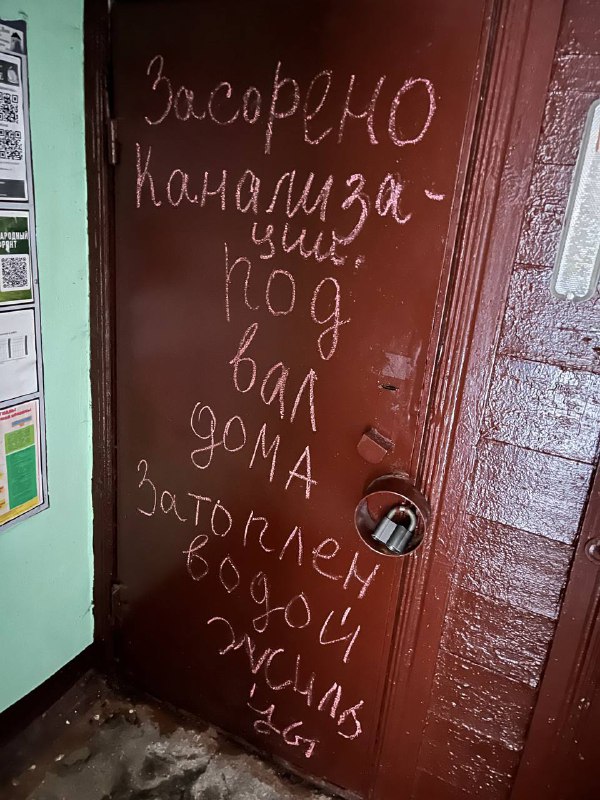 Засорено
Канализа-
ции.
Под
вал
дома
Затоплен
водой
жиль
цы
АРОДНЫЙ
РОНТ